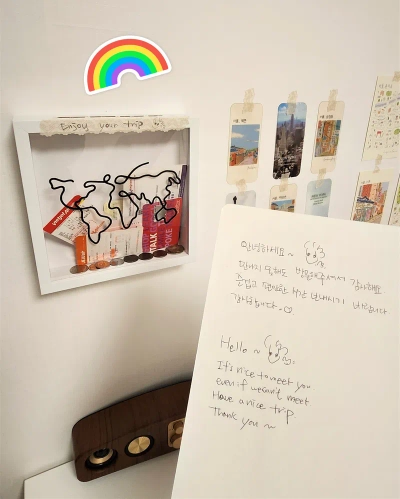 Enjoy your trip
안녕하세요 ~
만나지 못해도 반가워
감사해요
즐겁고 편안한 시간 보내시기 바랍니다
감사합니다. ♡
Hello ~
It's nice to meet you
even if we can't meet
Have a nice trip.
Thank you ~
TALK